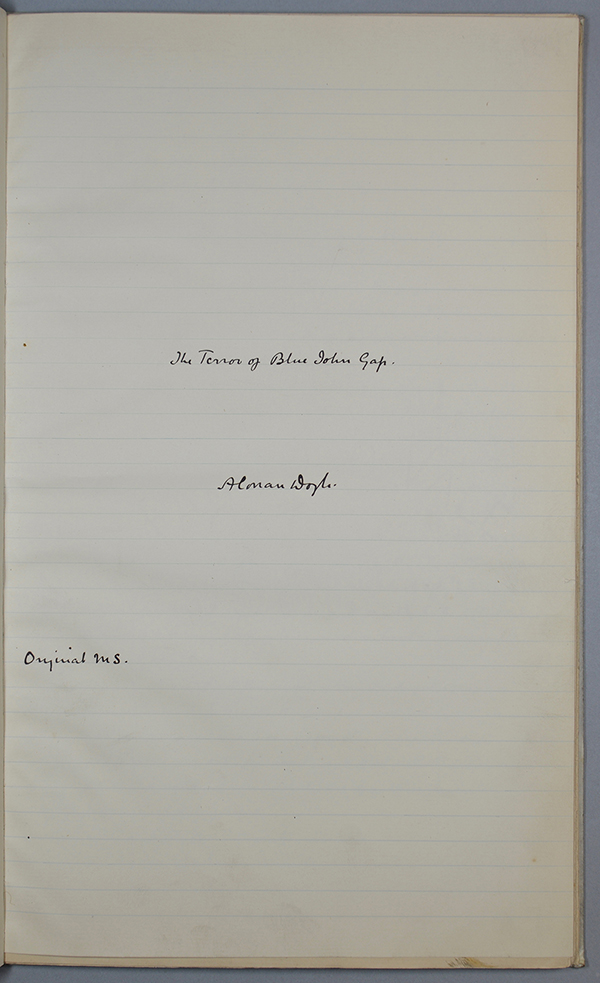 The Terror of Blue John Gap.
A Conan Doyle.
Original MS.